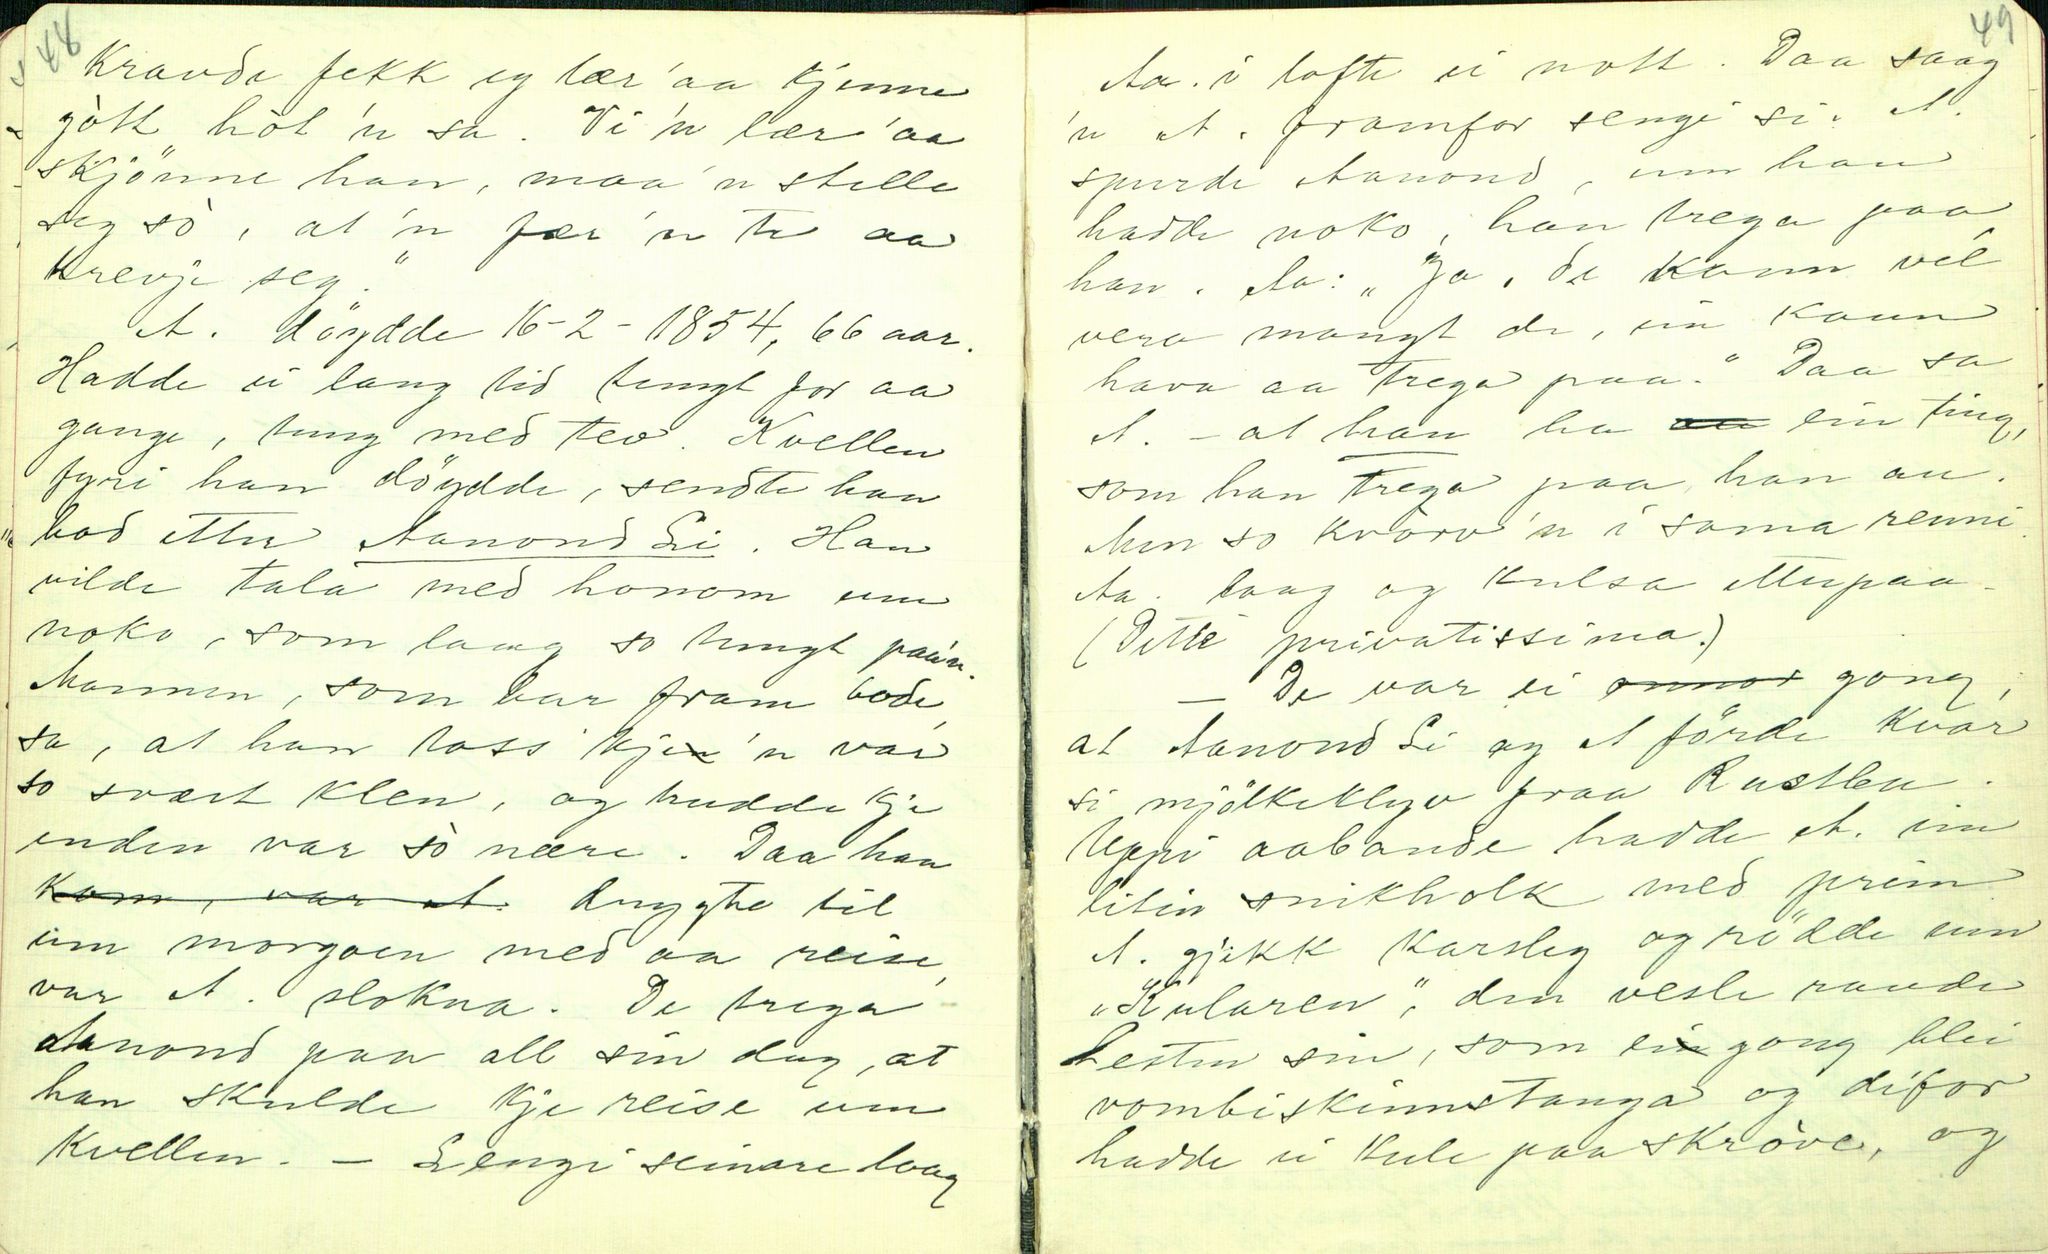 48
Kravde fekk eg lær'aa kjenne
gòtt hòt'n sa. Vi'n lær'aa
skjönne han, maa'n stelle
seg sò, at'n fær'n te aa
krevje seg."
A. döydde 16-2-1854, 66 aar.
Hadde ei lang tid tungt for aa
gange, tung med tev. Kvellen
fyri han döydde, sendte han
bod etter Aanond Li. Han
vilde tala med honom um
noko, som laag so tungt paa'n.
Mannen, som bar fram bode,
sa, at han toss kje'n var
so svært klen, og trudde kje
enden var sò nære. Daa han
kom, var A. drygte til
um morgoen med aa reise,
var A. slokna. De trega
Aanond paa all sin dag, at
han skulde kje reise um
kvellen. – Lengi seinare laag
49
Aa. i lofte ei nott. Daa saag
'n A. framfor sengi si. A.
spurde Aanond, um han
hadde noko, han trega paa
han. Aa: „Ja, de kann vel
vera mangt de, ein kann
hava aa trega paa." Daa sa
A. – at han ha ein ting,
som han trega paa han au.
Men so kvòrv'n i sama renni.
Aa. laag og kulsa ettepaa.
(Dette privatissima.)
– De var ei annor gong,
at Aanond Li og A förde kvar
si mjölkeklyv fraa Rustlen.
Uppi aabande hadde A. ein
liten snikholk med prim
A. gjekk karsleg og rödde um
„Kularen", den vesle raude
hesten sin, som ein gong blei
vombiskinnstanga og difor
hadde ei kule paa skròve, og